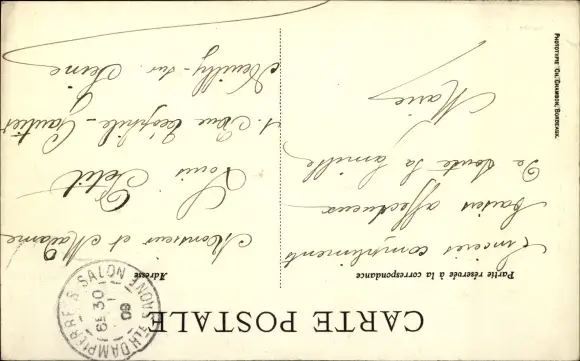 CARTE POSTALE
Partie réservée à la correspondance
Sincères compliments
baisers affectueux
De toute la famille
Marie
Adresse
Monsieur et Madame
Louis Petit
1. Rue Théophile-Gautier
Neuilly-sur Seine
DAMPIERRE-S-SALON
8H 30
09
HTE SAONE
PHOTOTYPIE CH. CHAMBON, BORDEAUX.